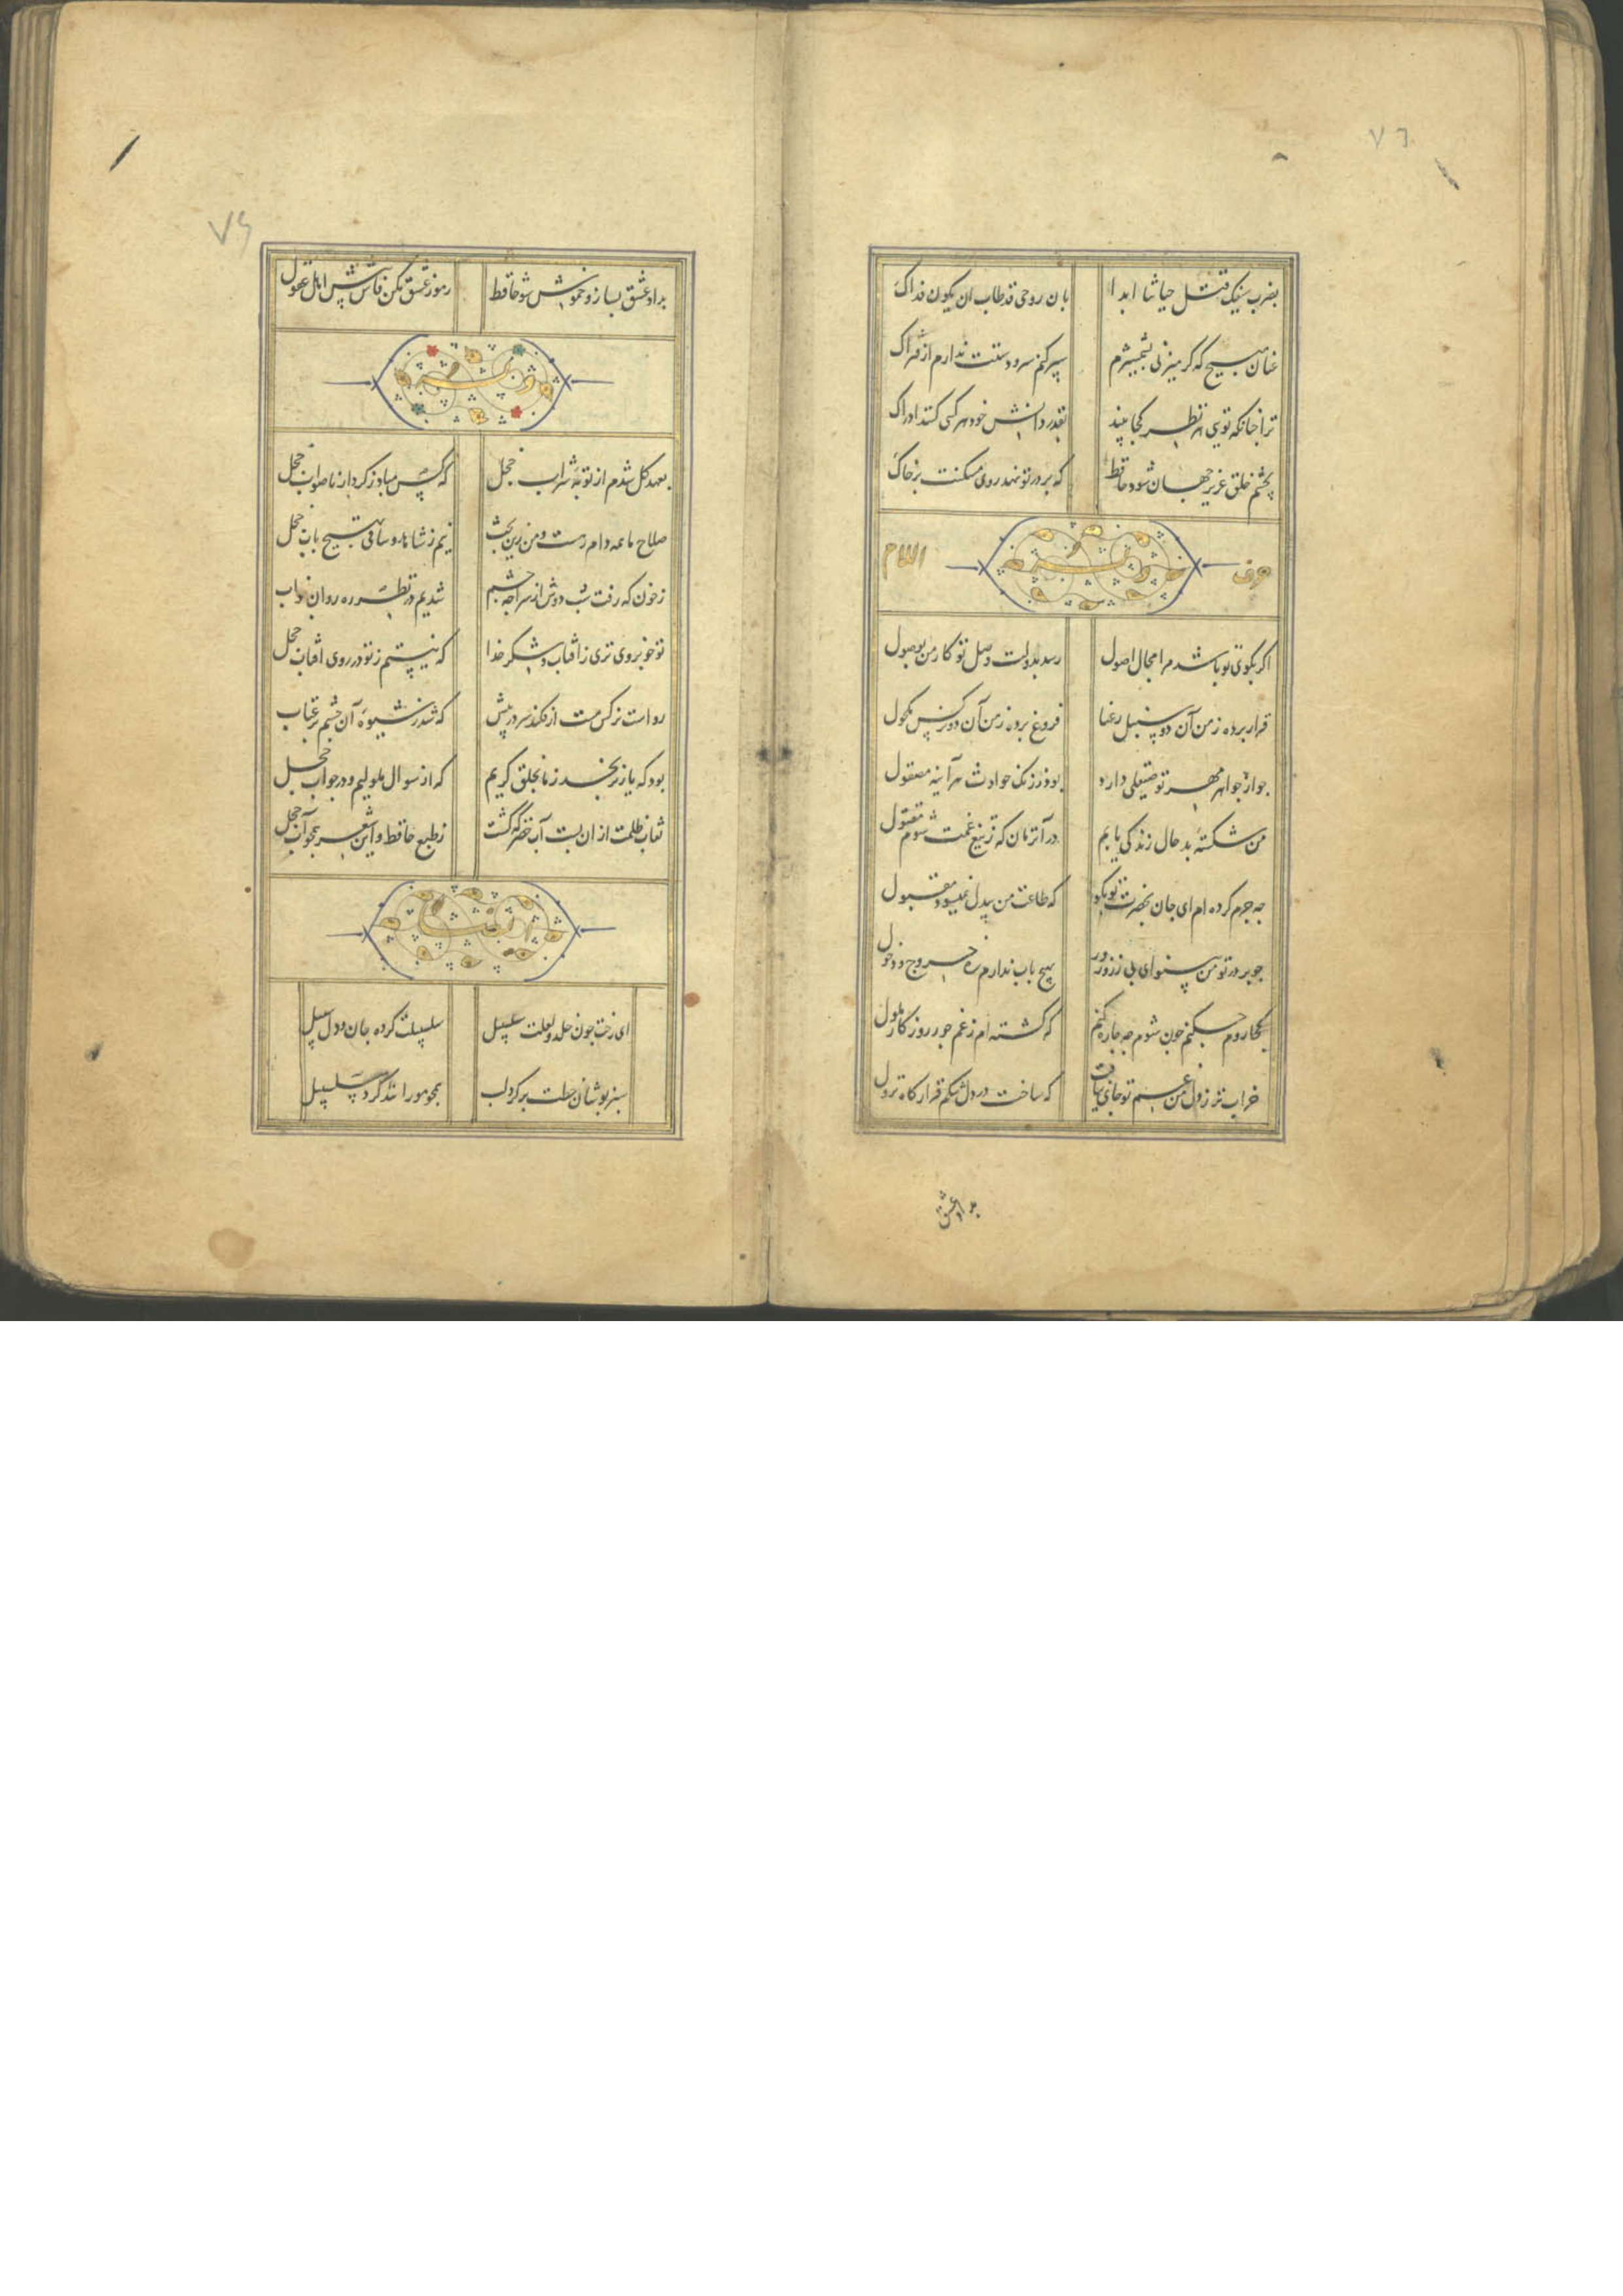 ۷٦
بضرب سیفک قتل حیاتنا ابدا بان روحی قد طاب ان یکون فداک
عنان مپیچ که گر میزنی بشمشیرم سپر کنم سر و دستت ندارم از فتراک
ترا چنانکه تویی هر نظر کجا بیند بقدر دانش خود هر کسی کند ادراک
بچشم خلق عزیز جهان شود حافظ که بر در تو نهد روی مسکنت بر خاک
حرف وله اللام
اکر بکوی تو باشد مرا مجال اصول رسد بدولت وصل تو کار من بوصول
قرار برده ز من آن دو سنبل رعنا فروغ برده ز من آن دو نرکس مکحول
جو از جواهر مهر تو صیقلی دارد بود ز زنک حوادث هر آینه مصقول
من شکسته بد حال زندکی یابم در آن زمان که ز تیغ غمت شوم مقتول
جه جرم کرده ام ای جان بحضرت تو بکو که طاعت من بیدل نمیشود مقبول
جو بر در تو من بینوای بی زر و زور بهیچ باب ندارم ره خروج و دخول
کجا روم جکنم جون شوم جه جاره کنم که کشته ام ز غم جور روزکار ملول
خراب تر ز دل من غم تو جای نیافت که ساخت در دل تنکم قرارکاه نزول
بدرد عشق
۷۶
بدرد عشق بساز و خموش شو حافظ رموز عشق مکن فاش پیش اهل عقول
وله
بعهد کل شدم از توبه شراب خجل که کس مباد ز کردار ناصواب خجل
صلاح ما همه دام رهست و من زین بحث نیم ز شاهد و ساقی بهیچ باب خجل
ز خون که رفت شب دوش از سراجه جشم شدیم در نظر ره روان خواب
تو خوبروی تری ز افتاب و شکر خدا که نیستم ز تو در روی افتاب خجل
رواست نرکس مست ار فکند سر در پیش که شد ز شیوه آن جشم پر عتاب
بود که یار نرنجد ز ما بخلق کریم که از سوال ملولیم و در جواب خجل
نقاب ظلمت از ان بست آب خضر که کشت ز طبع حافظ و این شعر همجو آب خجل
ای رخت جون خلد و لعلت سلسبیل سلسبیلت کرده جان و دل سبیل
سبز پوشان خطت بر کرد لب همجو مورانند کرد سلسبیل